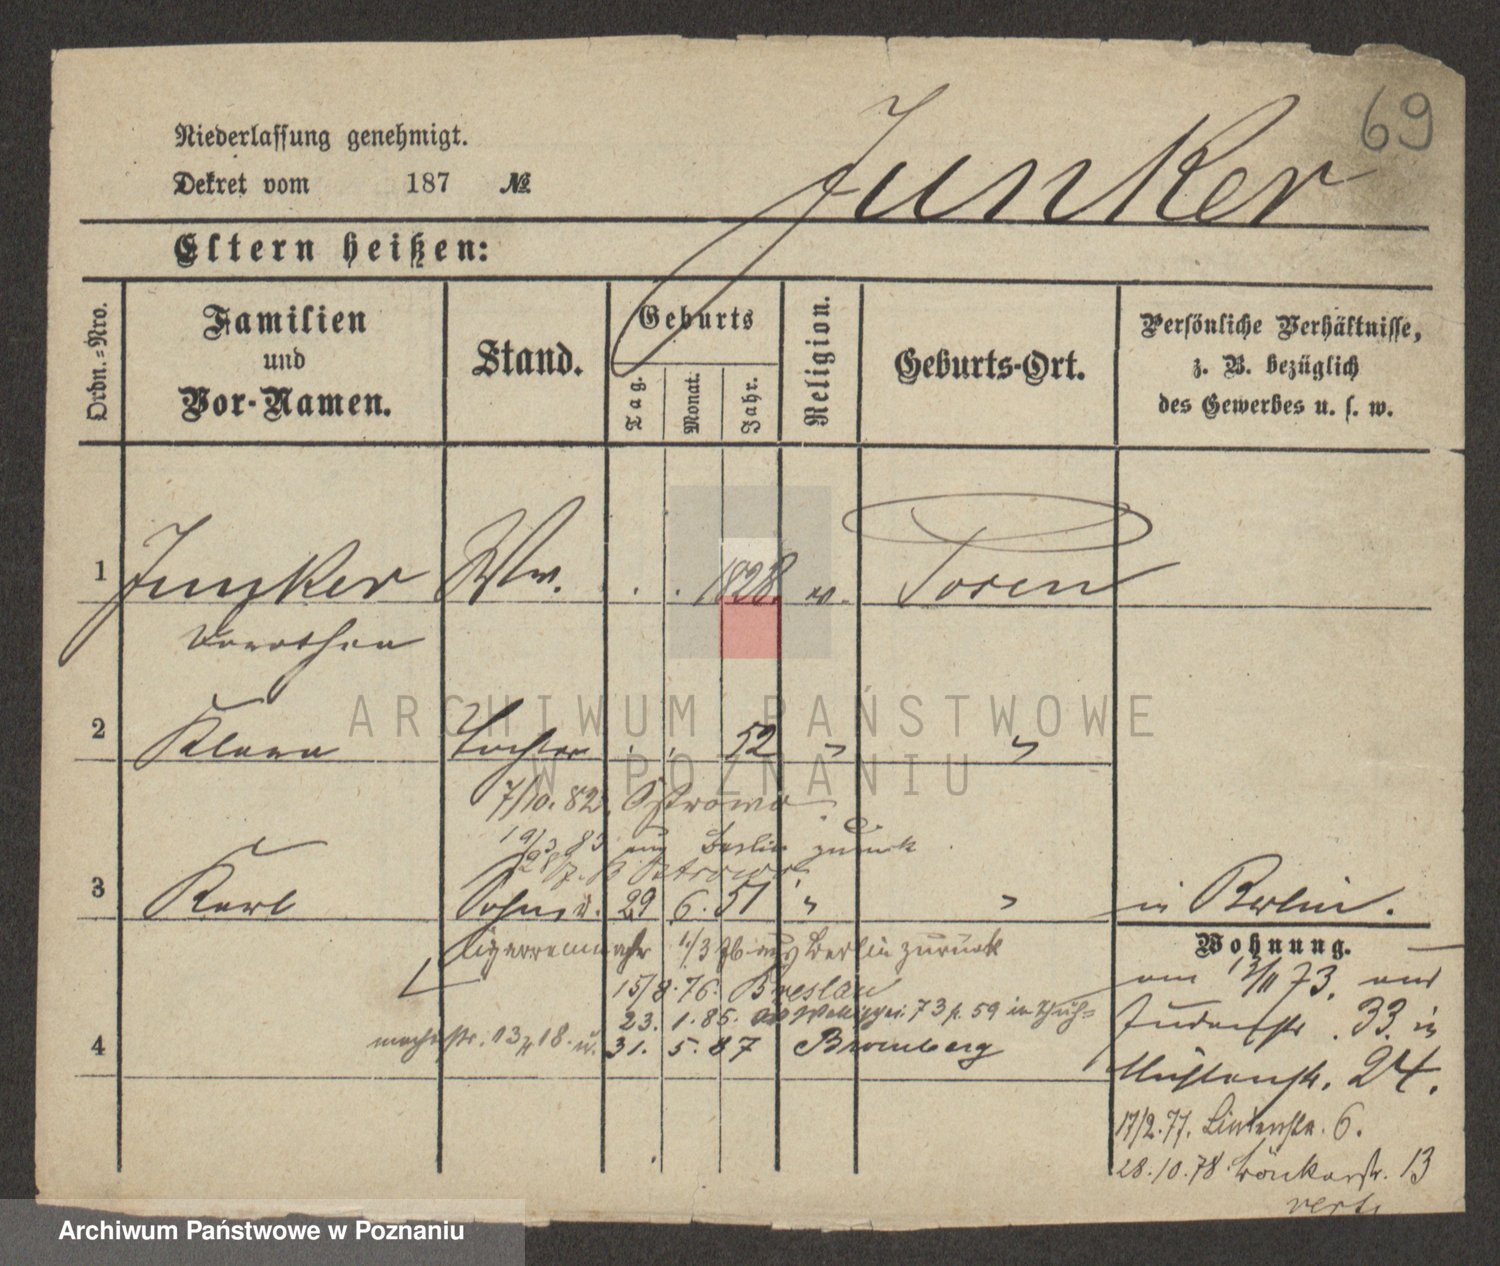 69
Junker
Niederlassung genehmigt.
Dekret vom 187 №
Eltern heißen:
Ordn.=Nro.
Familien
und
Vor-Namen.
Stand.
Geburts
Tag.
Monat.
Jahr.
Religion.
Geburts-Ort.
Persönliche Verhältnisse,
z. B. bezüglich
des Gewerbes u. s. w.
1 Junker Ww. . . 1828. Posen
Dorothea
2 Klara Tochter . . 52 " "
7/10. 82. Ostrowo
19/3. 83 aus Berlin zurück
Ostrowo
3 Karl Sohn 29 6. 51 " " in Berlin.
Cigarrenmacher 1/3 76 aus Berlin zurück
15/8. 76. Breslau
23. 1. 85. 73 p. 59 in Schuh=
macherstr. 13 18. u. 31. 5. 87 Bromberg
4
Wohnung.
am 12/11 73. aus
Judenstr. 33. in
Mühlenstr. 24.
17/2. 77. Lindenstr. 6.
28. 10. 78. 13
verte
ARCHIWUM PAŃSTWOWE
W POZNANIU
Archiwum Państwowe w Poznaniu